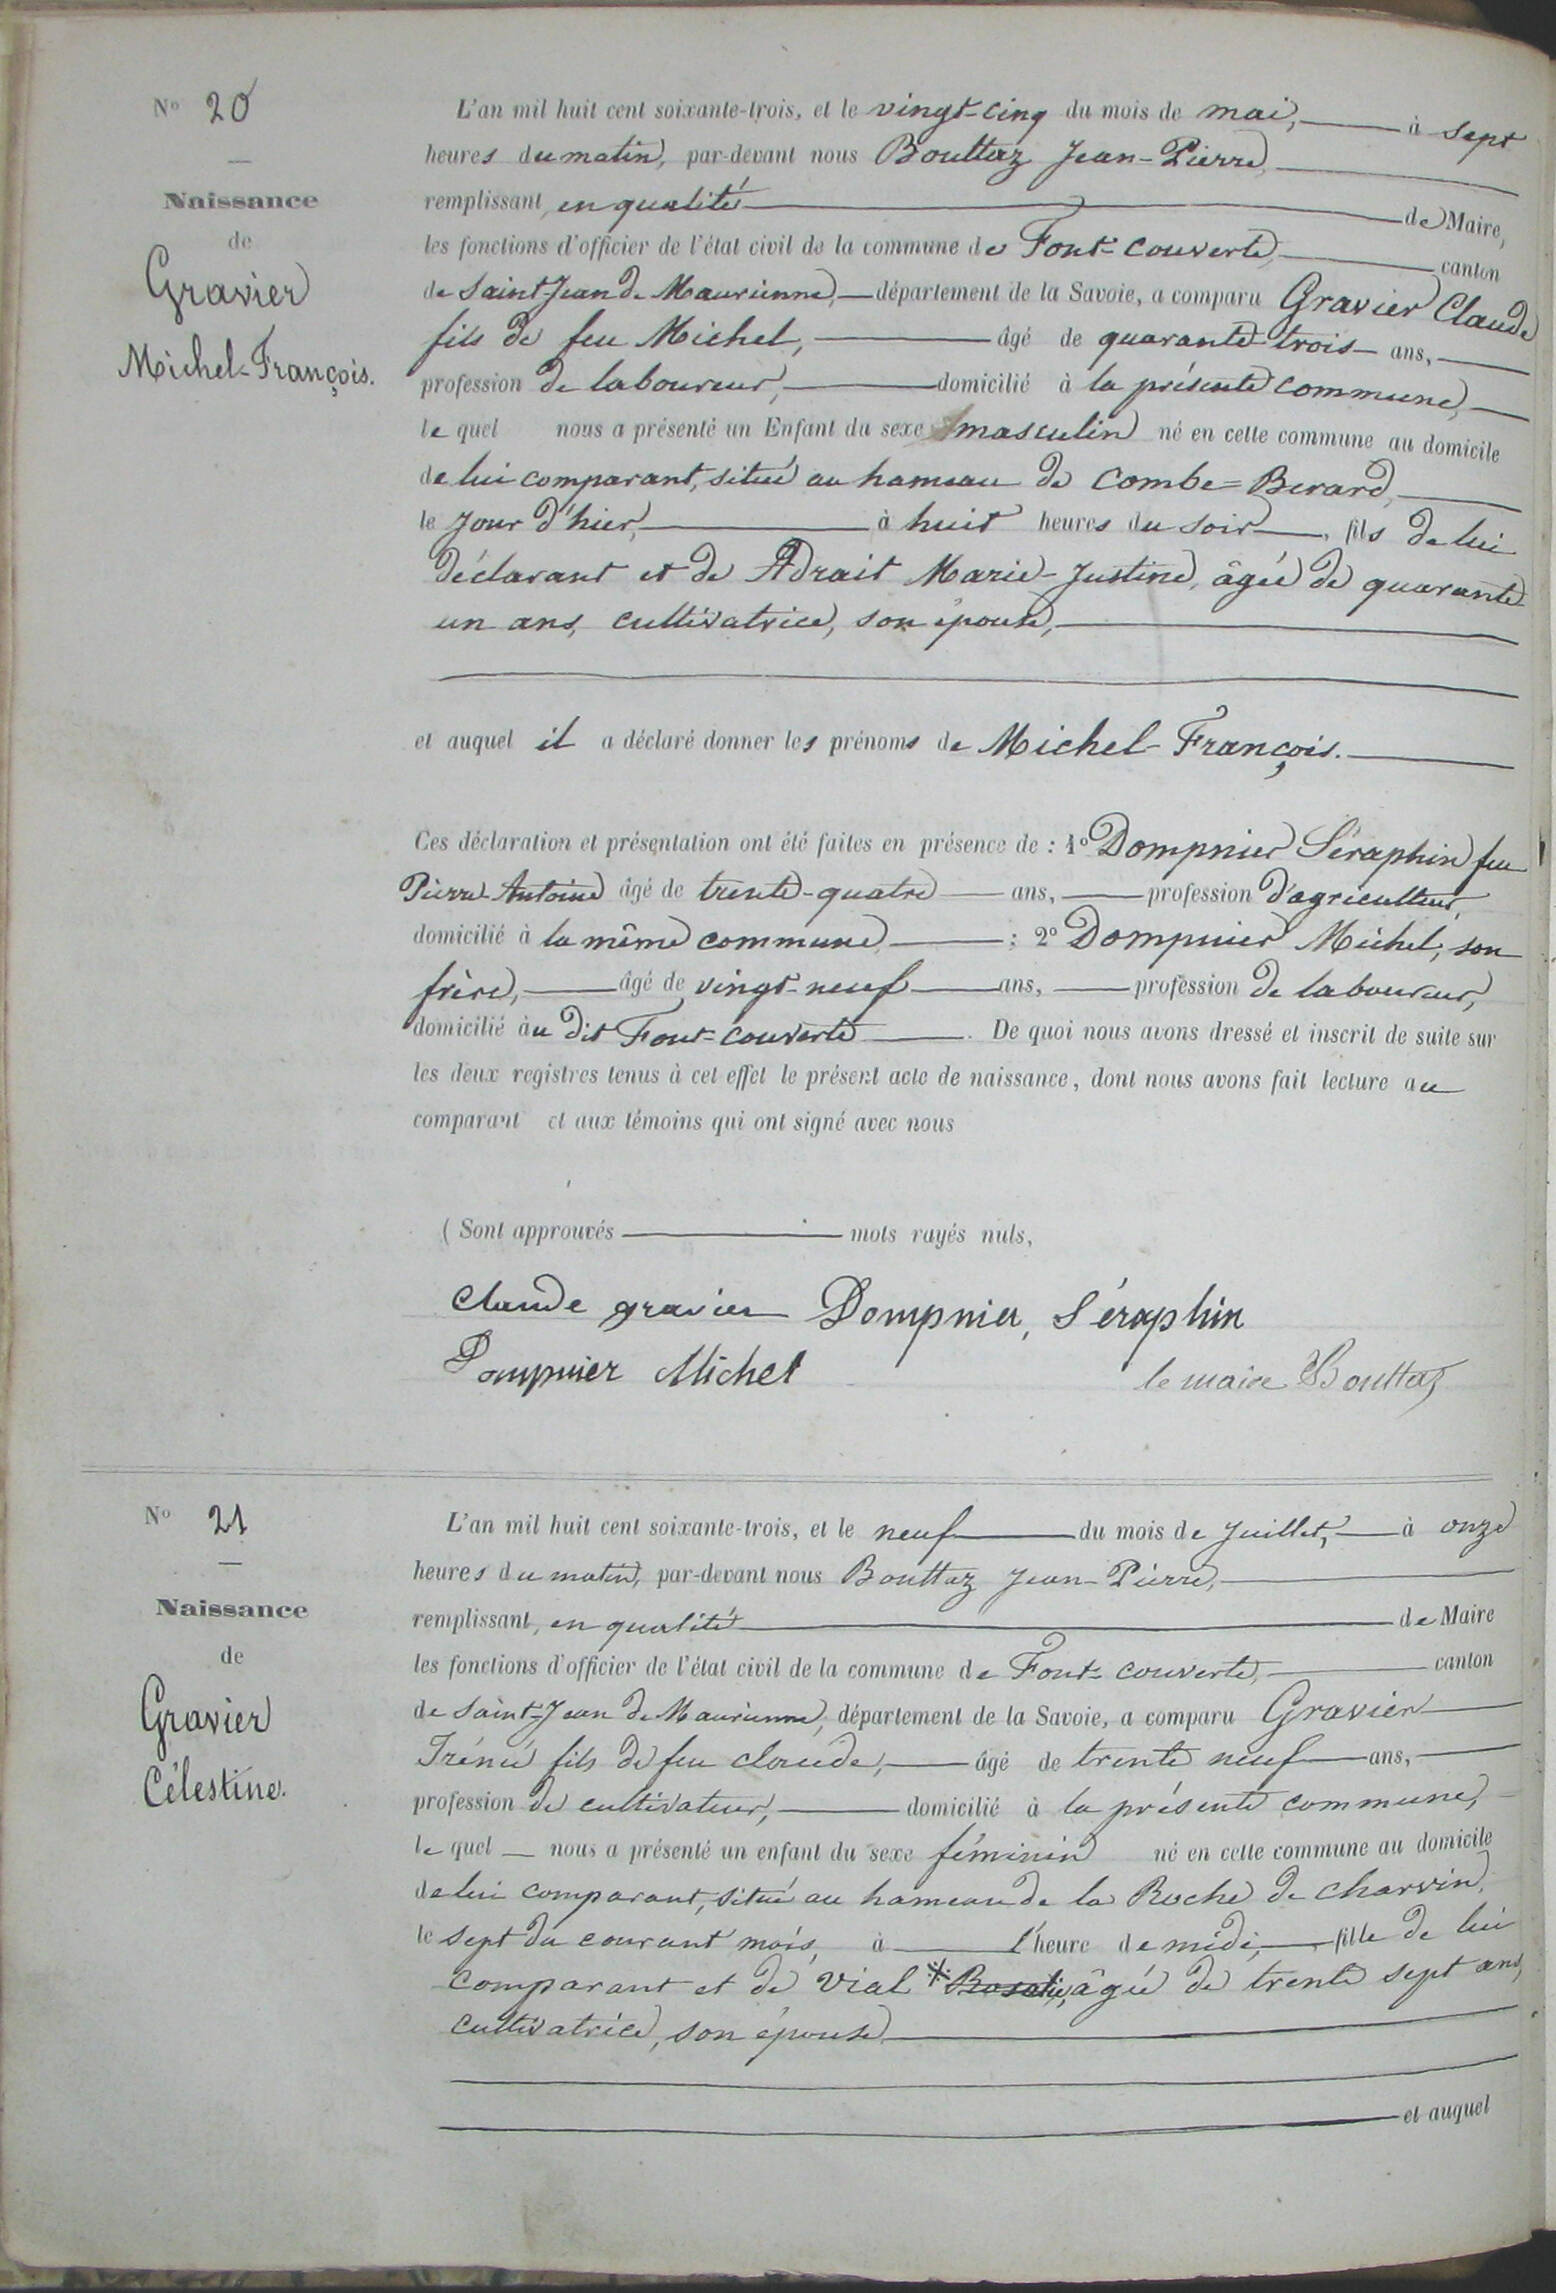 N° 20
Naissance
de
Gravier
Michel-François.
L'an mil huit cent soixante-trois, et le vingt-cinq du mois de mai, à sept
heures du matin, par-devant nous Bouttaz Jean-Pierre,
remplissant, en qualité de Maire,
les fonctions d'officier de l'état civil de la commune de Font-couverte, canton
de Saint-Jean de Maurienne, département de la Savoie, a comparu Gravier Claude
fils de feu Michel, âgé de quarante-trois ans,
profession de laboureur, domicilié à la présente commune,
le quel nous a présenté un Enfant du sexe masculin né en cette commune au domicile
de lui comparant, situé au hameau de Combe=Berard,
le jour d'hier, à huit heures du soir, fils de lui
déclarant et de Adrait Marie-Justine, âgée de quarante-
un ans, cultivatrice, son épouse,
et auquel il a déclaré donner les prénoms de Michel-François.
Ces déclaration et présentation ont été faites en présence de : 1° Dompnier Séraphin feu
Pierre-Antoine âgé de trente-quatre ans, profession d'agriculteur,
domicilié à la même commune ; 2° Dompnier Michel, son
frère, âgé de vingt-neuf ans, profession de laboureur,
domicilié au dit Font-couverte. De quoi nous avons dressé et inscrit de suite sur
les deux registres tenus à cet effet le présent acte de naissance, dont nous avons fait lecture au
comparant et aux témoins qui ont signé avec nous
(Sont approuvés mots rayés nuls,
Claude gravier Dompnier, Séraphin
Dompnier Michel le maire Bouttaz
N° 21
Naissance
de
Gravier
Célestine.
L'an mil huit cent soixante-trois, et le neuf du mois de Juillet, à onze
heures du matin, par-devant nous Bouttaz Jean-Pierre,
remplissant, en qualité de Maire
les fonctions d'officier de l'état civil de la commune de Font-couverte, canton
de Saint-Jean de Maurienne, département de la Savoie, a comparu Gravier
Iréné fils de feu Claude, âgé de trente neuf ans,
profession de cultivateur, domicilié à la présente commune,
le quel nous a présenté un enfant du sexe féminin né en cette commune au domicile
de lui comparant, situé au hameau de la Roche de Charvin,
le sept du courant mois, à l'heure de midi, fille de lui
comparant et de Vial * Rosalie, âgée de trente sept ans,
cultivatrice, son épouse
et auquel